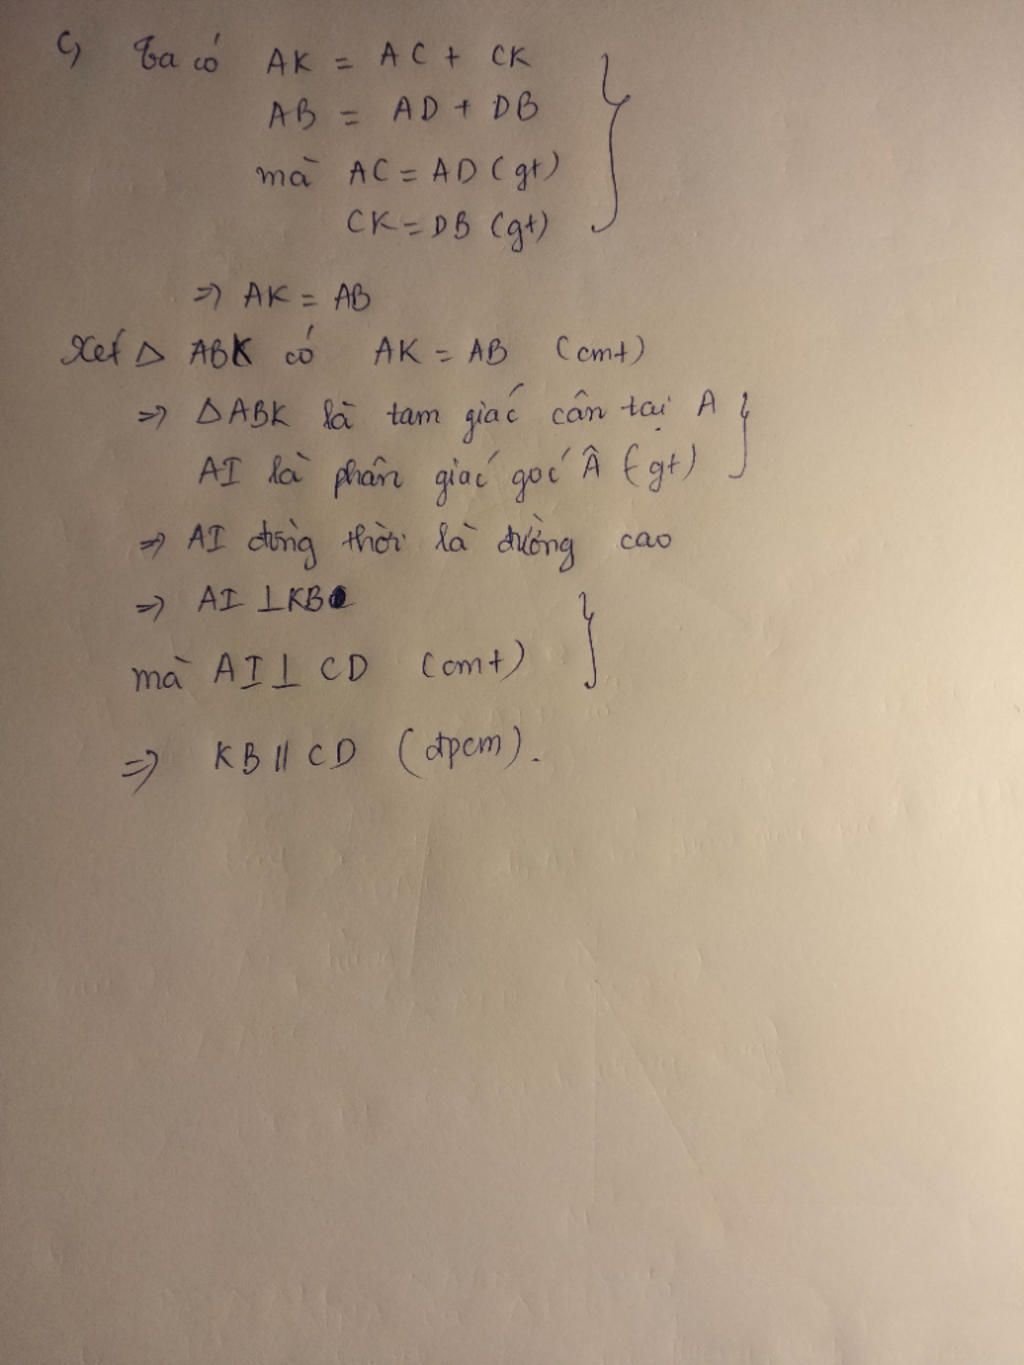 c, Ta có AK = AC + CK
AB = AD + DB
mà AC = AD (gt)
CK = DB (gt)
=> AK = AB
Xét △ ABK có AK = AB (cmt)
=> △ABK là tam giác cân tại A
AI là phân giác góc Â (gt)
=> AI đồng thời là đường cao
=> AI ⊥ KB
mà AI ⊥ CD (cmt)
=> KB // CD (đpcm).